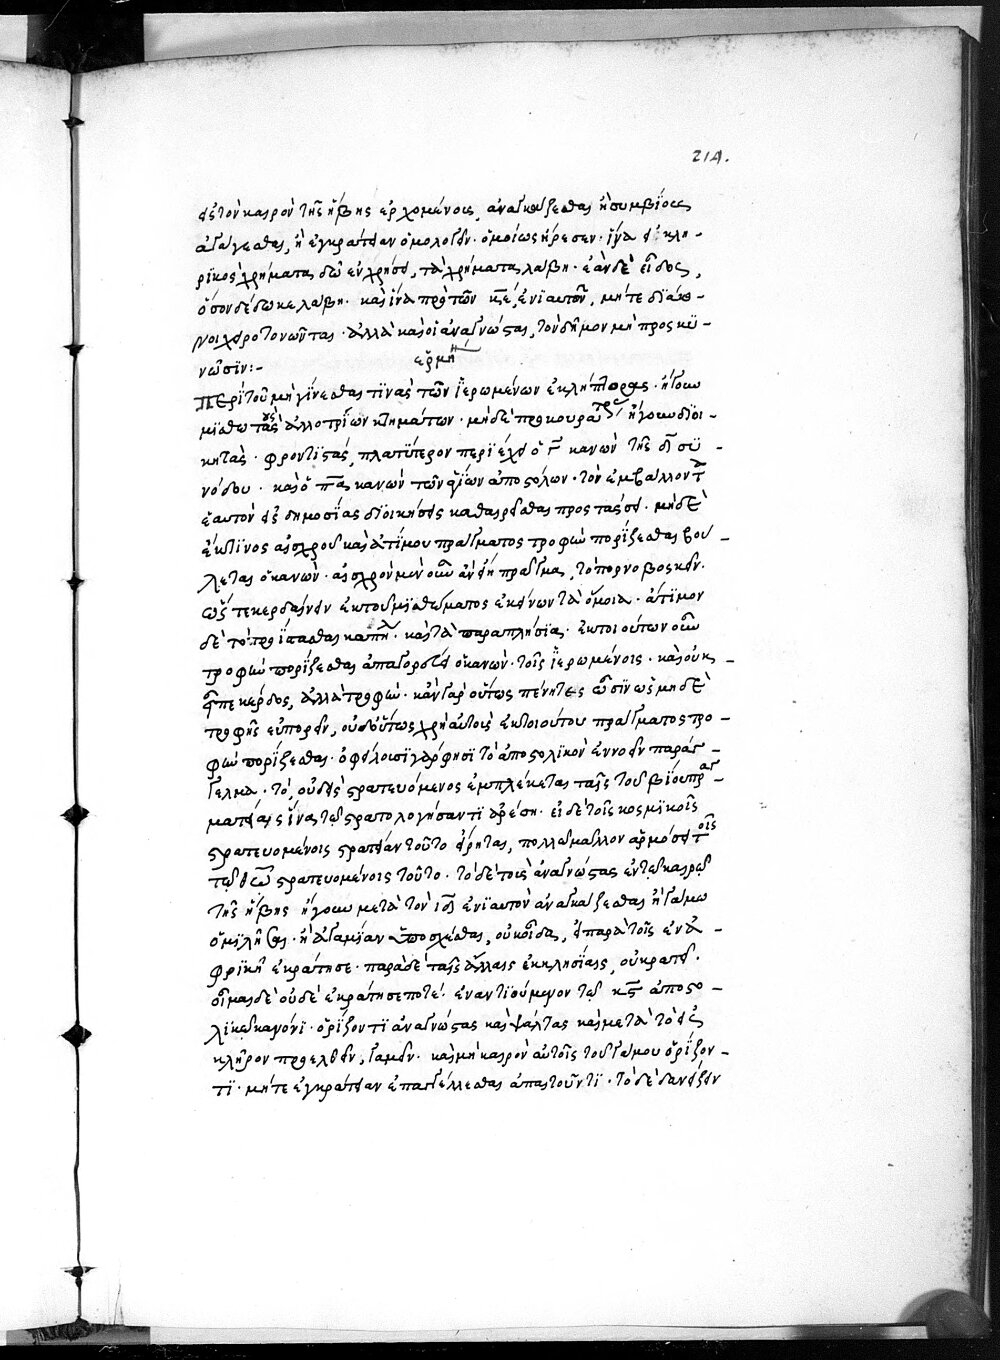 214.
εἰς τὸν καιρὸν τῆς ἥβης ἐρχομένους, ἀναγκάζεσθαι ἢ συμβίους
ἀγαγέσθαι, ἢ ἐγκράτειαν ὁμολογεῖν· ὁμοίως ἤρεσεν· ἵνα εἰ κλη-
ρικὸς χρήματα δῷ ἐν χρήσει, τὰ χρήματα λάβῃ· ἐὰν δὲ εἶδος,
ὅσον δέδωκε λάβῃ· καὶ ἵνα πρὸ τῶν κε ἐνιαυτῶν, μήτε διάκο-
νοι χειροτονῶνται· ἀλλὰ καὶ οἱ ἀναγνώσται, τὸν δῆμον μὴ προσκυ-
νῶσιν:-
ἑρμη
Περὶ τοῦ μὴ γίνεσθαι τινὰς τῶν ἱερωμένων ἐκλήπτορας· ἤγουν
μισθωτὰς ἀλλοτρίων κτημάτων· μηδὲ προκουρα ἤγουν διοι-
κητὰς· φροντιστὰς, πλατύτερον περιέχει ὁ γ κανὼν τῆς δ συ-
νόδου· καὶ ὁ πα κανὼν τῶν ἁγίων ἀποστόλων· τὸν ἐμβάλλοντα
ἑαυτὸν εἰς δημοσίας διοικήσεις καθαιρεῖσθαι προστάσσει· μηδὲ
ἐκ τινος αἰσχροῦ καὶ ἀτίμου πράγματος τροφὴν πορίζεσθαι βού-
λεται ὁ κανών· αἰσχρὸν μὲν οὖν ἂν εἴη πρᾶγμα, τὸ πορνοβοσκεῖν·
ὥστε κερδαίνειν ἐκ τοῦ μισθώματος ἐκείνων τὰ ὅμοια· ἄτιμον
δὲ τὸ προΐστασθαι καπη· καὶ τὰ παραπλήσια· ἐκ τοιούτων οὖν
τροφὴν πορίζεσθαι ἀπαγορεύει ὁ κανών· τοῖς ἱερωμένοις· καὶ οὐκ
εἶπε κέρδος, ἀλλὰ τροφήν· κἂν γὰρ οὕτως πένητες ὦσιν ὡς μηδὲ
τροφῆς εὐπορεῖν, οὐδ' οὕτως χρὴ αὐτοὺς ἐκ τοιούτου πράγματος τρο-
φὴν πορίζεσθαι· ὀφείλουσι γάρ φησι τὸ ἀποστολικὸν ἐννοεῖν παράγ-
γελμα· τό, οὐδεὶς στρατευόμενος ἐμπλέκεται ταῖς τοῦ βίου πραγ-
ματείαις ἵνα τῷ στρατολογήσαντι ἀρέσῃ· εἰ δὲ τοῖς κοσμικοῖς
στρατευομένοις στρατείαν τοῦτο εἴρηται, πολλῷ μᾶλλον ἁρμόσει τοῖς
τῷ θεῷ στρατευομένοις τοῦτο· τὸ δὲ τοὺς ἀναγνώστας ἐν τῷ καιρῷ
τῆς ἥβης ἤγουν μετὰ τὸν ιδ ἐνιαυτὸν ἀναγκάζεσθαι ἢ γάμῳ
ὁμιλῆσαι· ἢ ἀγαμίαν ὑποσχέσθαι, οὐκ οἶδα, εἰ παρὰ τοῖς ἐν ἀ-
φρικῇ ἐκράτησε· παρὰ δὲ ταῖς ἄλλαις ἐκκλησίαις, οὐ κρατεῖ·
οἶμαι δὲ οὐδὲ ἐκράτησε ποτέ· ἐναντιούμενον τῷ κς ἀποστο-
λικῷ κανόνι· ὁρίζοντι ἀναγνώστας καὶ ψάλτας καὶ μετὰ τὸ εἰς
κλῆρον προελθεῖν, γαμεῖν· καὶ μὴ καιρὸν αὐτοῖς τοῦ γάμου ὁρίζον-
τι· μήτε ἐγκράτειαν ἐπαγγέλλεσθαι ἀπαιτοῦντι· τὸ δὲ δανείζειν